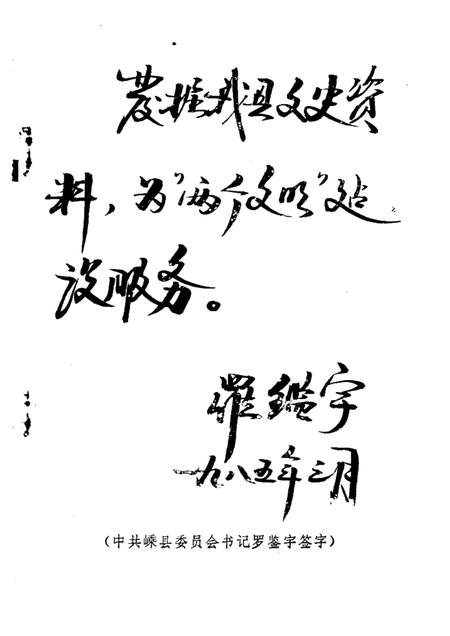 发掘我县文史资
料，为“两个文明”建
设服务。
羅鑑宇
一九八五年三月
（中共嵊县委员会书记罗鉴宇签字）